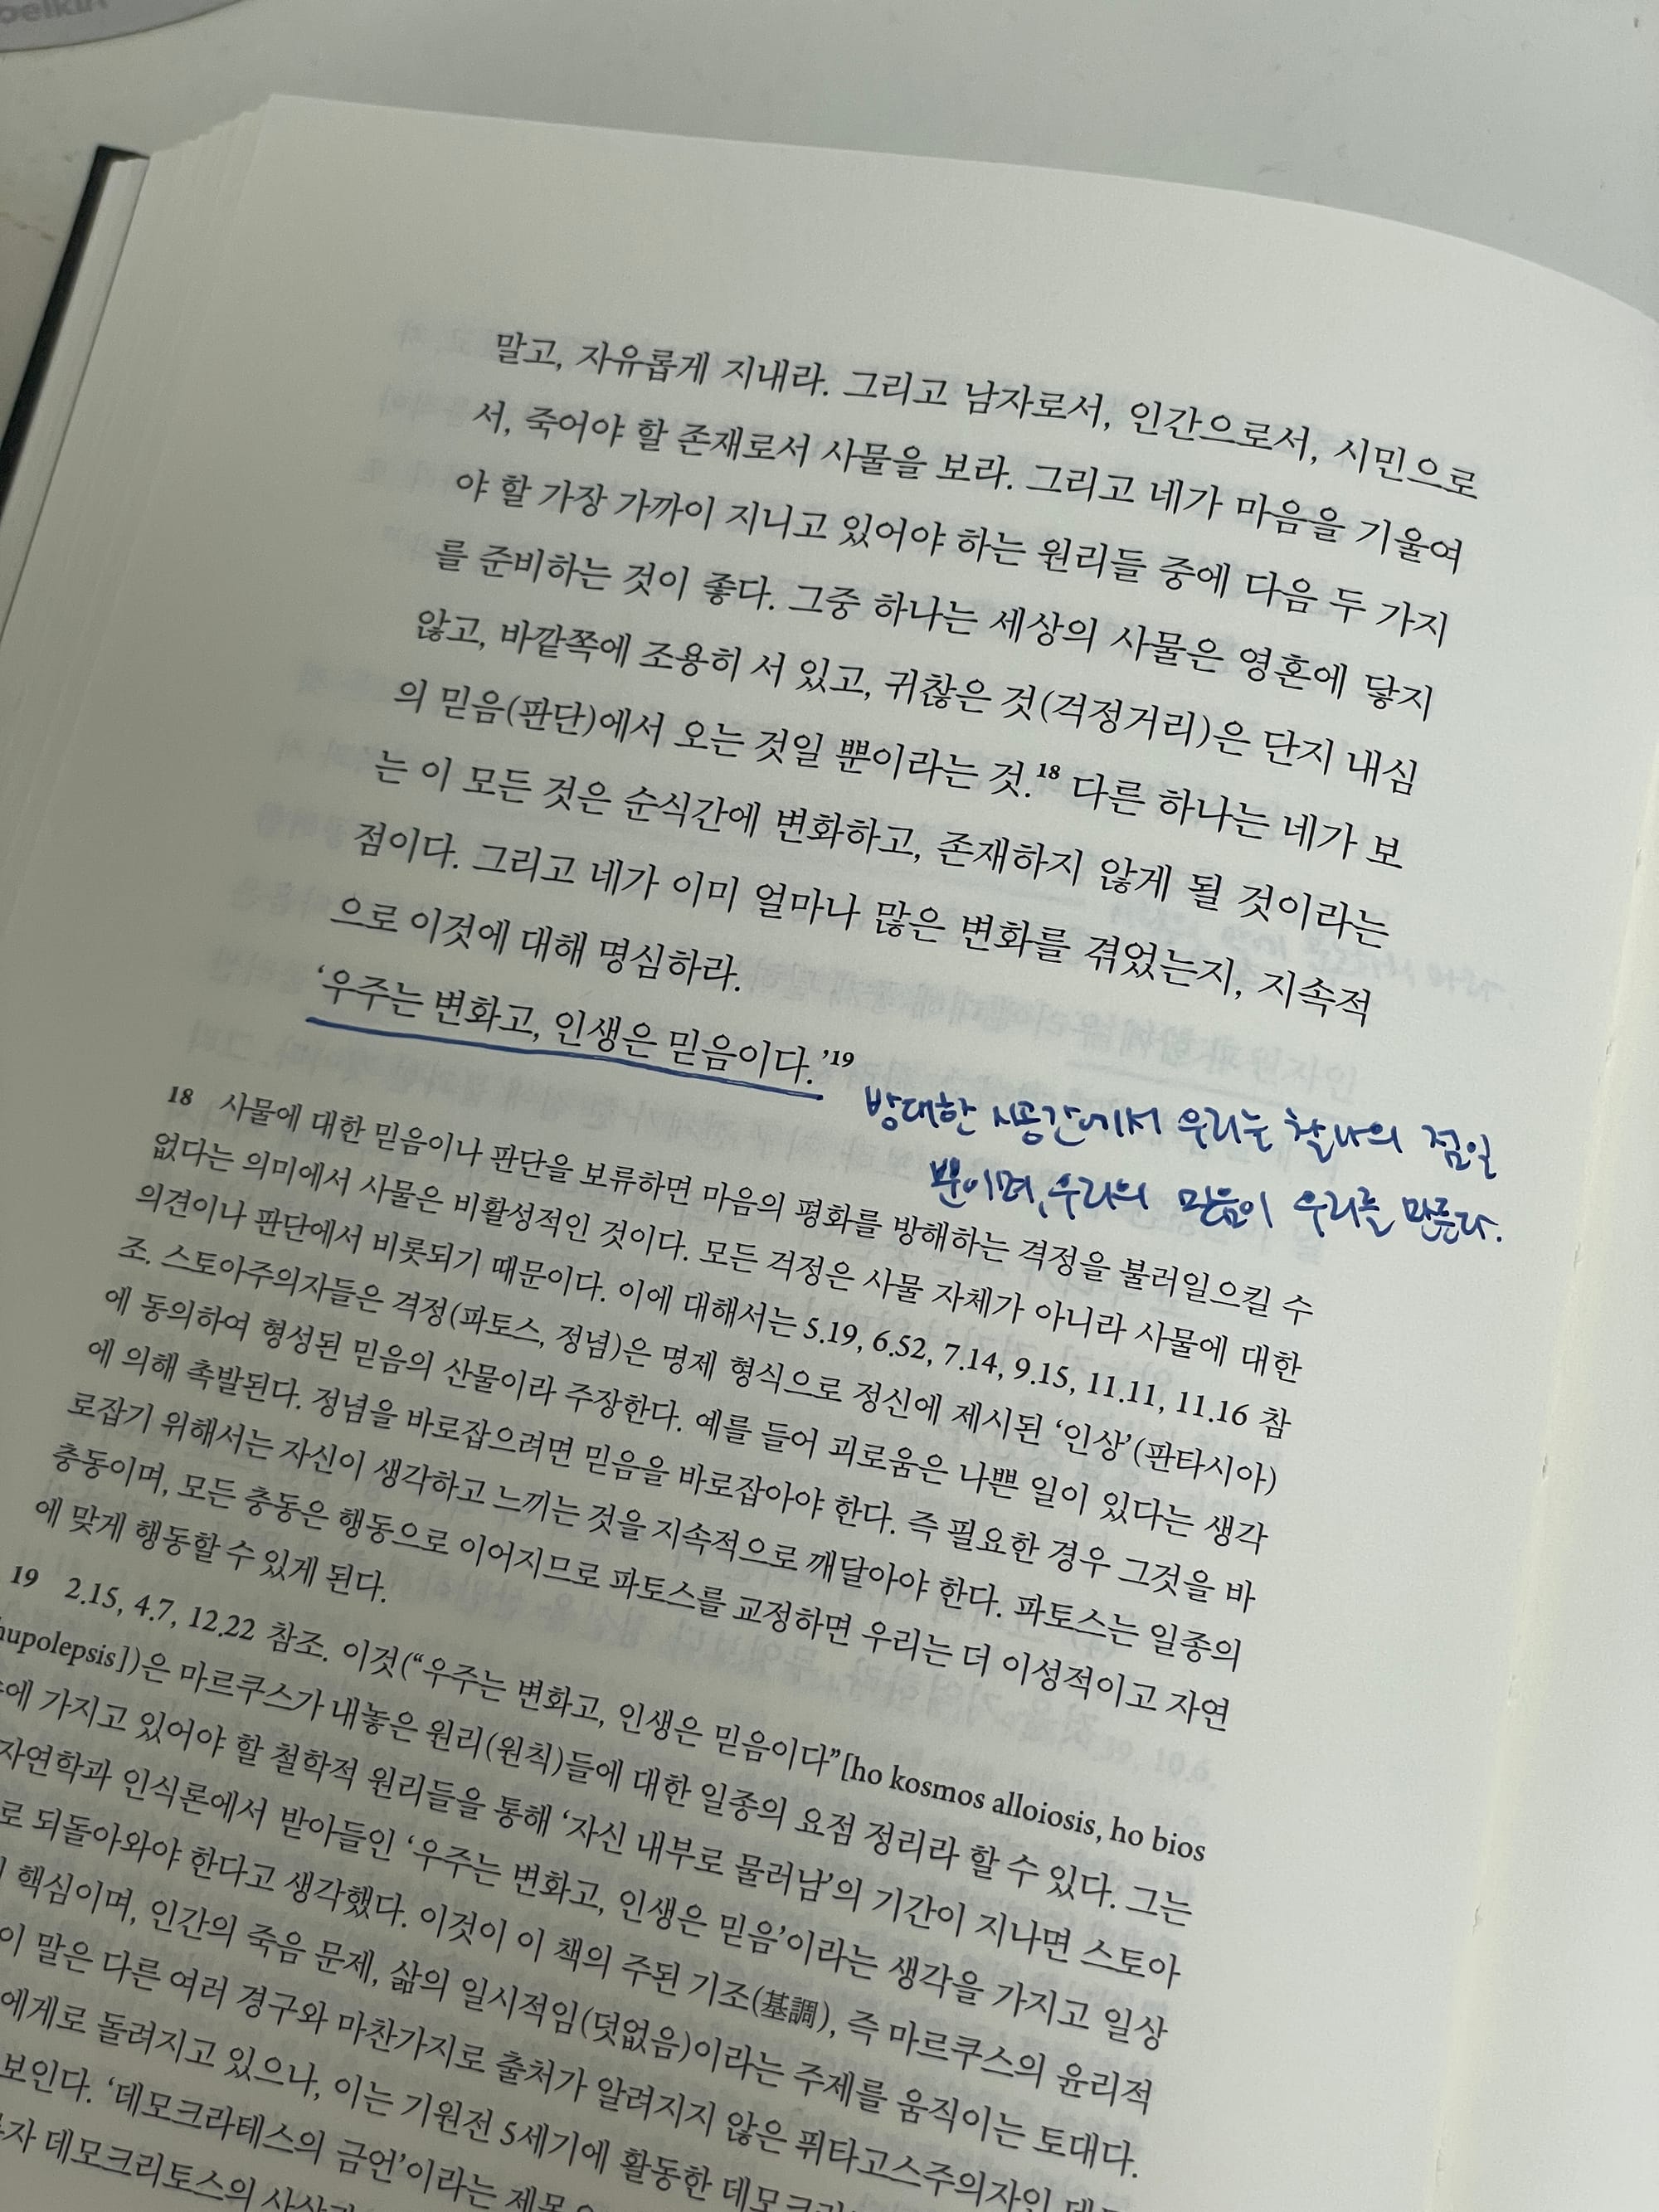 belkin
말고, 자유롭게 지내라. 그리고 남자로서, 인간으로서, 시민으로
서, 죽어야 할 존재로서 사물을 보라. 그리고 네가 마음을 기울여
야 할 가장 가까이 지니고 있어야 하는 원리들 중에 다음 두 가지
를 준비하는 것이 좋다. 그중 하나는 세상의 사물은 영혼에 닿지
않고, 바깥쪽에 조용히 서 있고, 귀찮은 것(걱정거리)은 단지 내심
의 믿음(판단)에서 오는 것일 뿐이라는 것.18 다른 하나는 네가 보
는 이 모든 것은 순식간에 변화하고, 존재하지 않게 될 것이라는
점이다. 그리고 네가 이미 얼마나 많은 변화를 겪었는지, 지속적
으로 이것에 대해 명심하라.
‘우주는 변화고, 인생은 믿음이다.’19
방대한 시공간에서 우리는 찰나의 점일
뿐이며, 우리의 믿음이 우리를 만든다.
18 사물에 대한 믿음이나 판단을 보류하면 마음의 평화를 방해하는 걱정을 불러일으킬 수
없다는 의미에서 사물은 비활성적인 것이다. 모든 걱정은 사물 자체가 아니라 사물에 대한
의견이나 판단에서 비롯되기 때문이다. 이에 대해서는 5.19, 6.52, 7.14, 9.15, 11.11, 11.16 참
조. 스토아주의자들은 걱정(파토스, 정념)은 명제 형식으로 정신에 제시된 ‘인상’(판타시아)
에 동의하여 형성된 믿음의 산물이라 주장한다. 예를 들어 괴로움은 나쁜 일이 있다는 생각
에 의해 촉발된다. 정념을 바로잡으려면 믿음을 바로잡아야 한다. 즉 필요한 경우 그것을 바
로잡기 위해서는 자신이 생각하고 느끼는 것을 지속적으로 깨달아야 한다. 파토스는 일종의
충동이며, 모든 충동은 행동으로 이어지므로 파토스를 교정하면 우리는 더 이성적이고 자연
에 맞게 행동할 수 있게 된다.
19 2.15, 4.7, 12.22 참조. 이것(“우주는 변화고, 인생은 믿음이다”[ho kosmos alloiosis, ho bios
hupolepsis])은 마르쿠스가 내놓은 원리(원칙)들에 대한 일종의 요점 정리라 할 수 있다. 그는
에 가지고 있어야 할 철학적 원리들을 통해 ‘자신 내부로 물러남’의 기간이 지나면 스토아
자연학과 인식론에서 받아들인 ‘우주는 변화고, 인생은 믿음’이라는 생각을 가지고 일상
로 되돌아와야 한다고 생각했다. 이것이 이 책의 주된 기조(基調), 즉 마르쿠스의 윤리적
핵심이며, 인간의 죽음 문제, 삶의 일시적임(덧없음)이라는 주제를 움직이는 토대다.
이 말은 다른 여러 경구와 마찬가지로 출처가 알려지지 않은 퓌타고스주의자인
에게로 돌려지고 있으나, 이는 기원전 5세기에 활동한
보인다. ‘데모크라테스의 금언’이라는
자 데모크리토스의